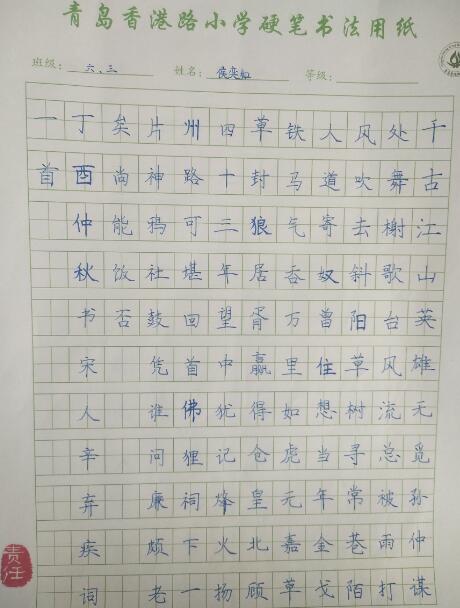 青岛香港路小学硬笔书法用纸
班级：六、三 姓名：侯奕如 等级：
千古江山英雄无觅孙仲谋
处舞榭歌台风流总被雨打
风吹去斜阳草树寻常巷陌
人道寄奴曾住想当年金戈
铁马气吞万里如虎元嘉草
草封狼居胥赢得仓皇北顾
四十三年望中犹记烽火扬
州路可堪回首佛狸祠下一
片神鸦社鼓凭谁问廉颇老
矣尚能饭否
丁酉仲秋书宋人辛弃疾词
一首
责任